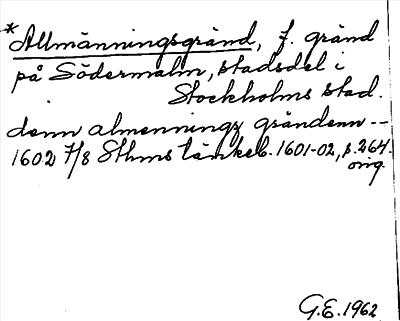 *Allmänningsgränd, f. gränd
på Södermalm, stadsdel i
Stockholms stad.
denn almennings grändenn --
1602 7/8 Sthms tänkeb. 1601-02, s. 264.
orig.
G.E. 1962